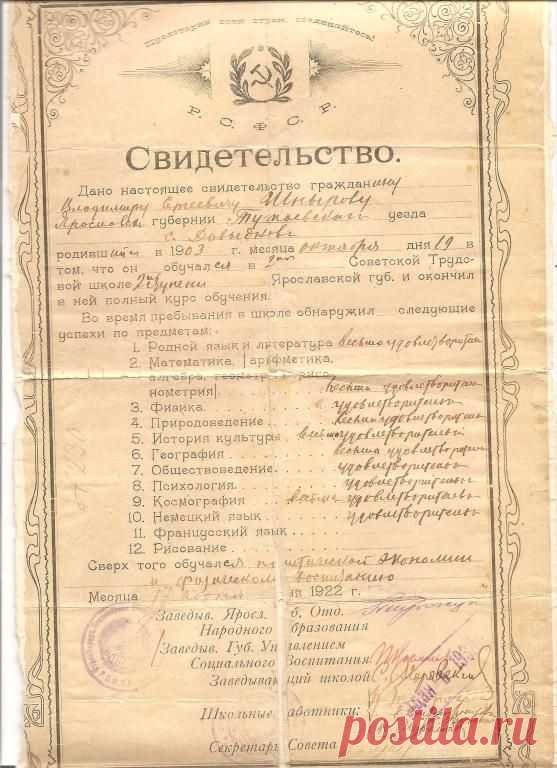 Пролетарии всех стран, соединяйтесь!
Р. С. Ф. С. Р.
Свидетельство.
Дано настоящее свидетельство гражданину
Владимиру Сергеевичу Шнырову
Ярославск губернии Тутаевский уезда
с. Давыдково
родившийся в 1903 г. месяца октября дня 19 в
том, что он обучался в Советской Трудо-
вой школе ступени Ярославской губ. и окончил
в ней полный курс обучения.
Во время пребывания в школе обнаружил следующие
успехи по предметам:
1. Родной язык и литература весьма удовлетворительн
2. Математика, [арифметика,
алгебра, геометрия, триго-
нометрия] весьма удовлетворительн
3. Физика удовлетворительны
4. Природоведение весьма удовлетворительны
5. История культуры весьма удовлетворительны
6. География весьма удовлетворительн
7. Обществоведение удовлетворительны
8. Психология удовлетворительны
9. Космография весьма удовлетворительны
10. Немецкий язык удовлетворительны
11. Французский язык
12. Рисование
Сверх того обучался политической экономии
и физическому воспитанию
Месяца 1922 г.
Заведыв. Яросл. Отд.
Народного Образования
Заведыв. Губ. Управлением
Социального Воспитания
Заведывающий школой
Школьные работники:
Секретарь Совета
postila.ru